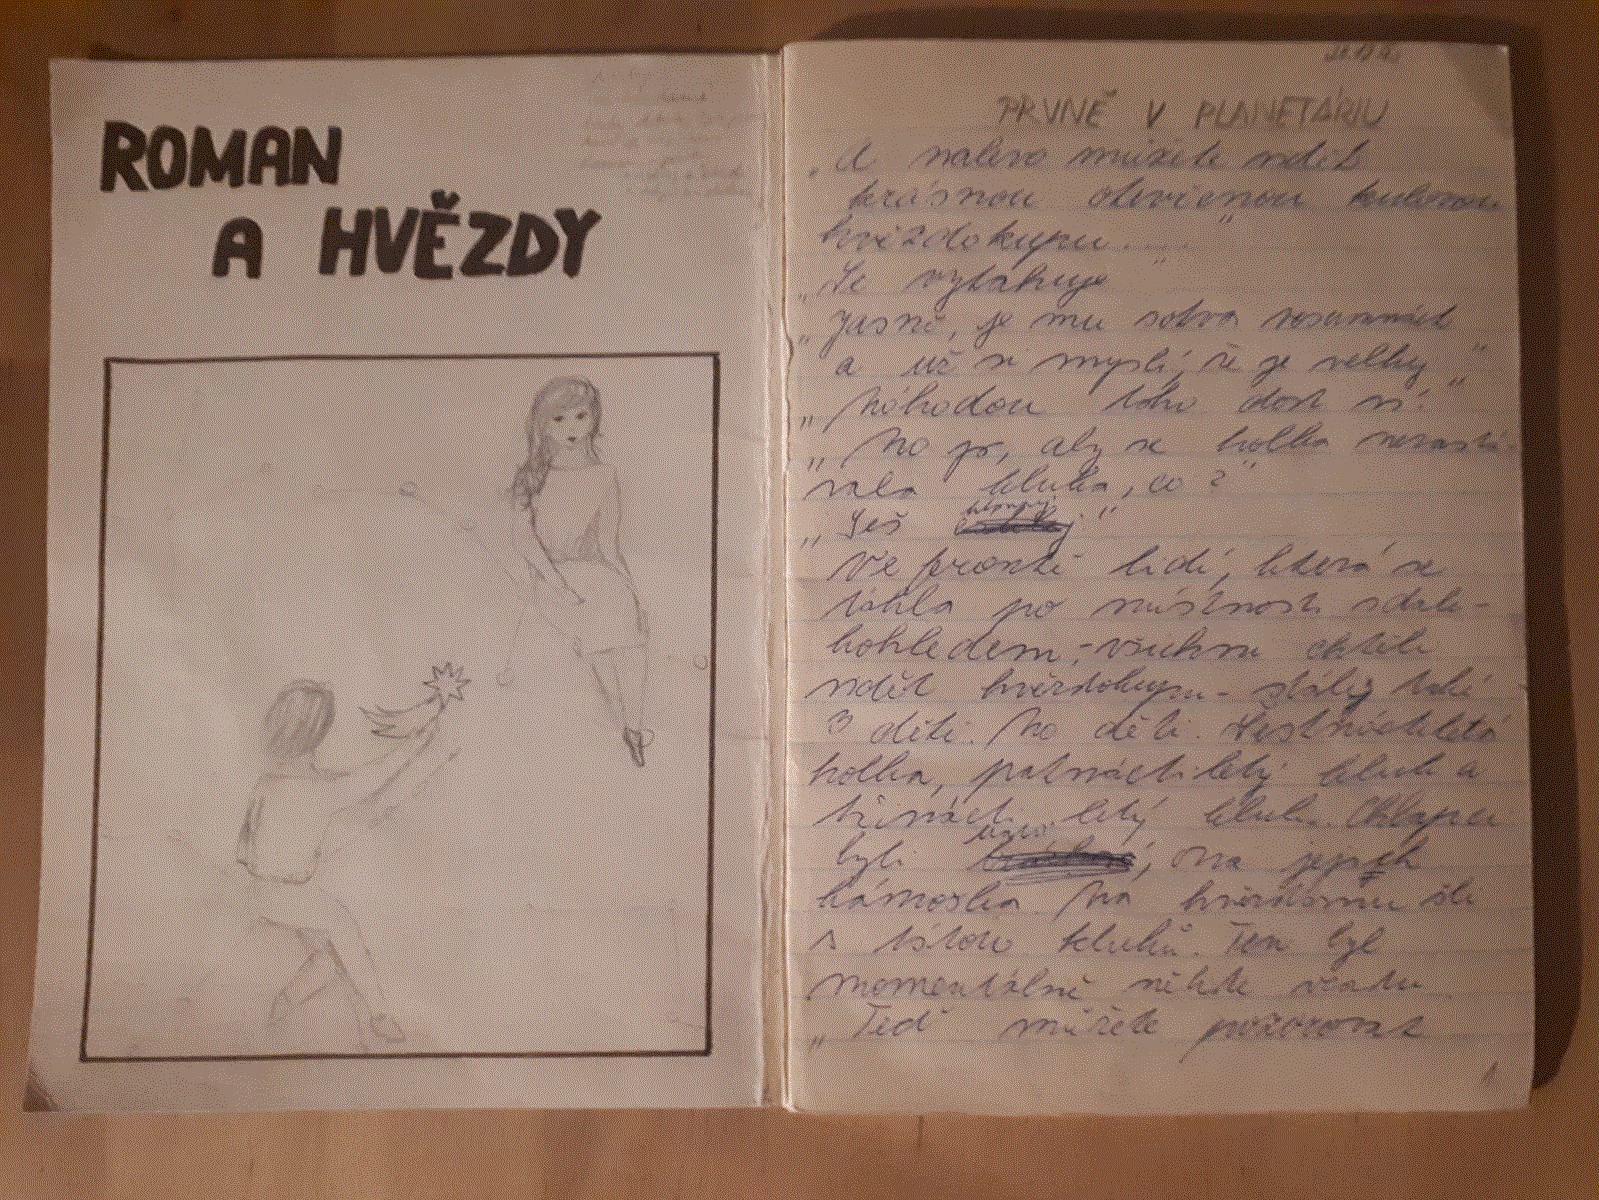 ROMAN
A HVĚZDY
PRVNĚ V PLANETÁRIU
„A nalevo můžete vidět
krásnou otevřenou kulovou
hvězdokupu....."
„Se vytahuje"
„Jasně, je mu sotva osumnáct
a už si myslí, že je velký"
„Náhodou toho dost ví."
„No jo, aby se holka nezastá-
vala kluka, co?"
„Seš
Ve frontě lidí, která se
táhla po místnosti s dale-
kohledem, - všichni chtěli
vidět hvězdokupu - stály také
3 děti. No děti. Šestnáctiletá
holka, patnáctiletý kluk a
třináctiletý kluk. Chlapci
byli , ona jejich
kámoška. Na hvězdárnu šli
s tátou kluků. Ten byl
momentálně někde vzadu.
„Teď můžete pozorovat
1